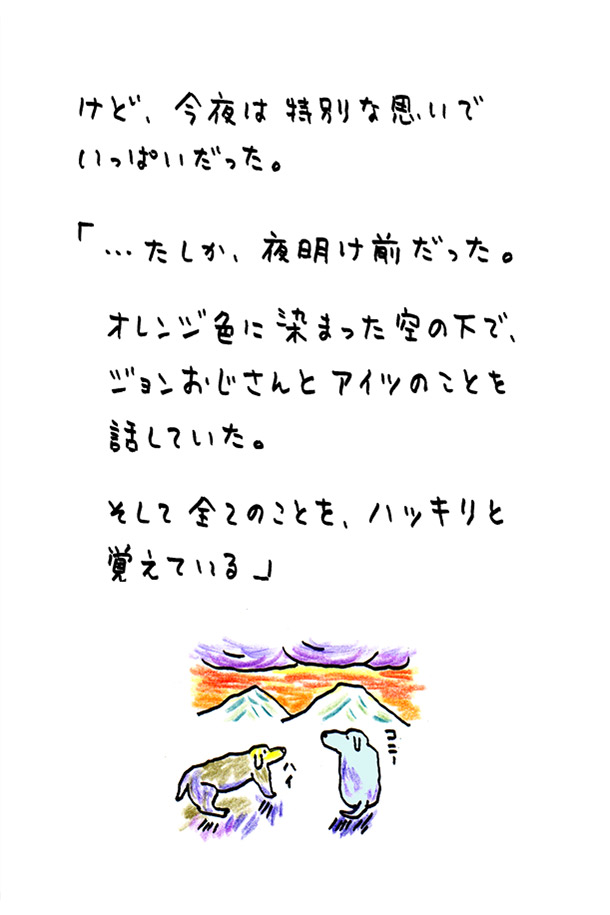 けど、今夜は特別な思いで
いっぱいだった。
「…たしか、夜明け前だった。
オレンジ色に染まった空の下で、
ジョンおじさんとアイツのことを
話していた。
そして全てのことを、ハッキリと
覚えている」
コニー
ハイ